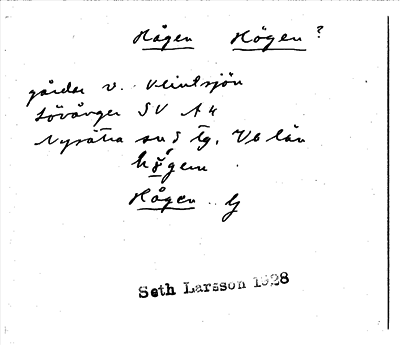 Hågen Högen?
gårdar v. Klintsjön
Lövånger SV A4
Nysätra sn S tg. Vb län
Hågen G
Seth Larsson 1928